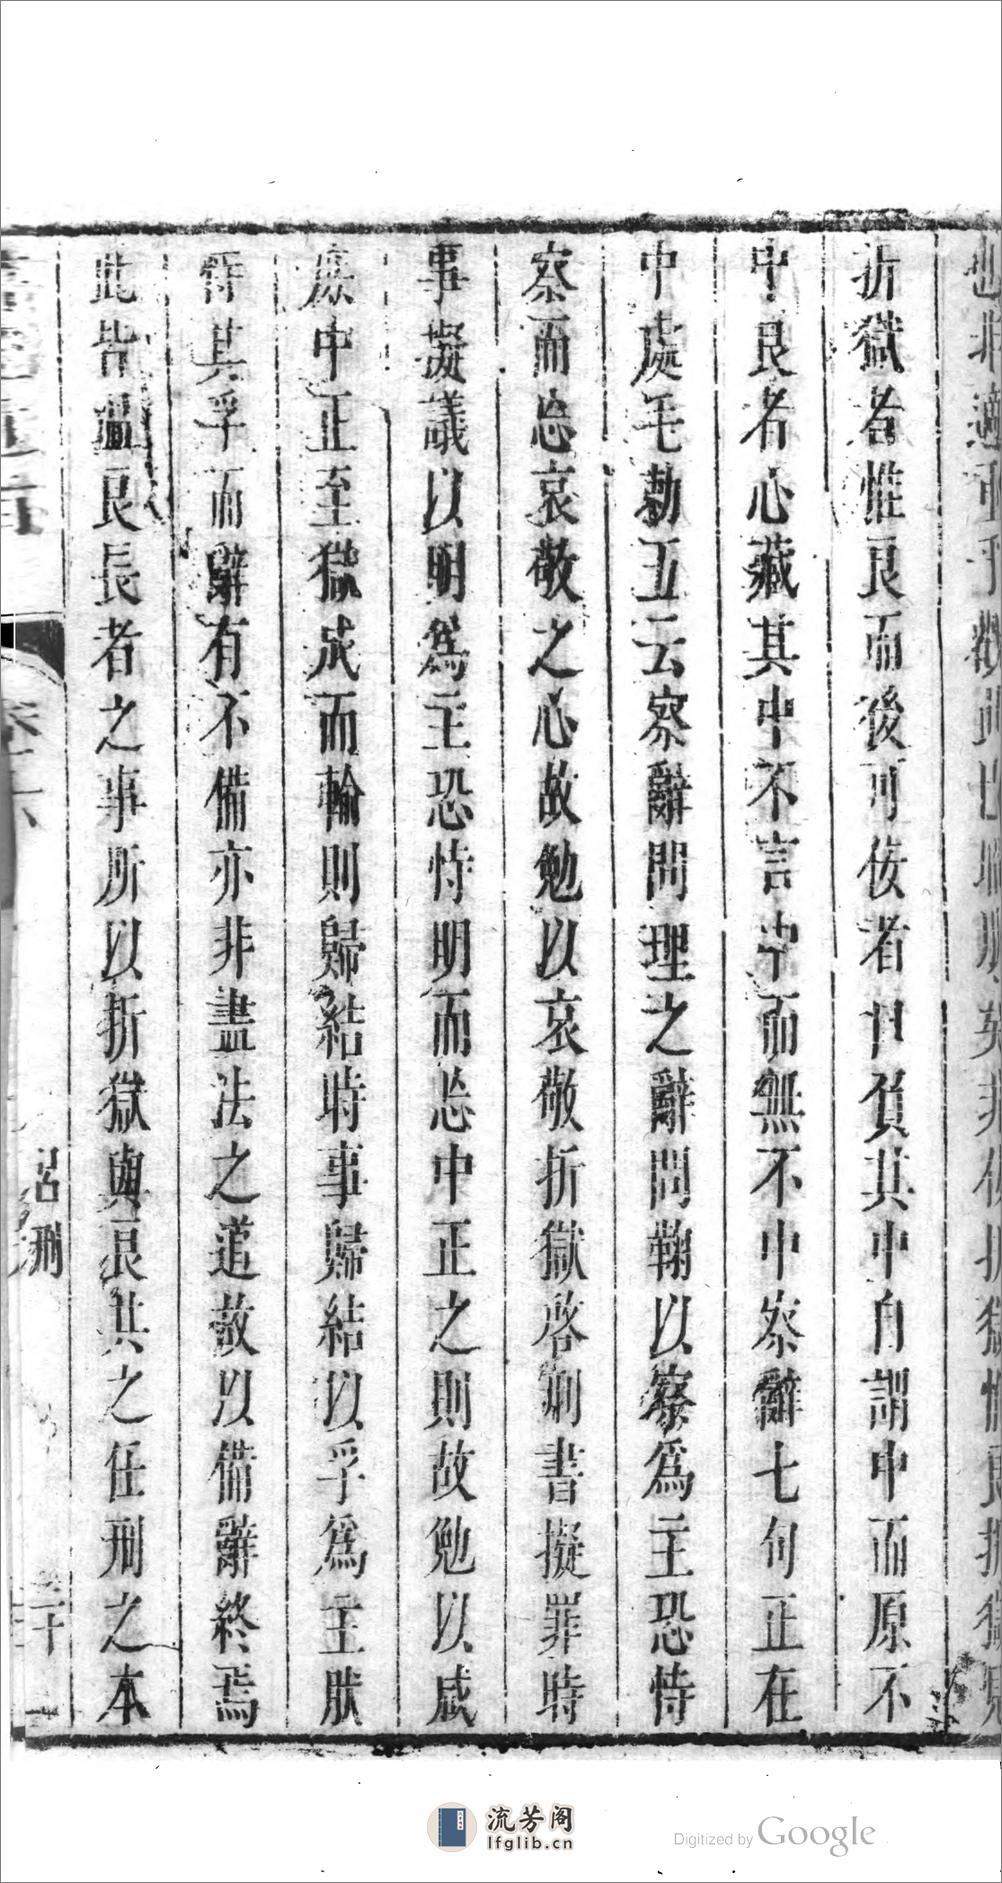 折獄者惟良而後可佞者世負其中自謂中而原不
中良者心藏其中不言中而無不中察辭七句正在
中處毛勑五云察辭問理之辭問鞫以察爲主恐恃
察而忘哀敬之心故勉以哀敬折獄啓刑書擬罪時
事擬議以明爲主恐恃明而忘中正之則故勉以咸
庶中正至獄成而輸則歸結時事歸結以孚爲主
恃其孚而辭有不備亦非盡法之道故以備辭終焉
此皆溫良長者之事所以折獄與良其之任刑之本
呂刑
三十
流芳阁
lfglib.cn
Digitized by Google